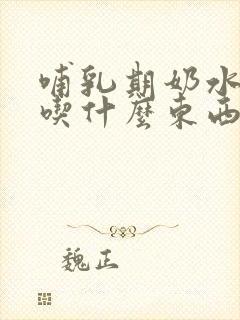 哺乳期奶水
喫什麼東西
魏正